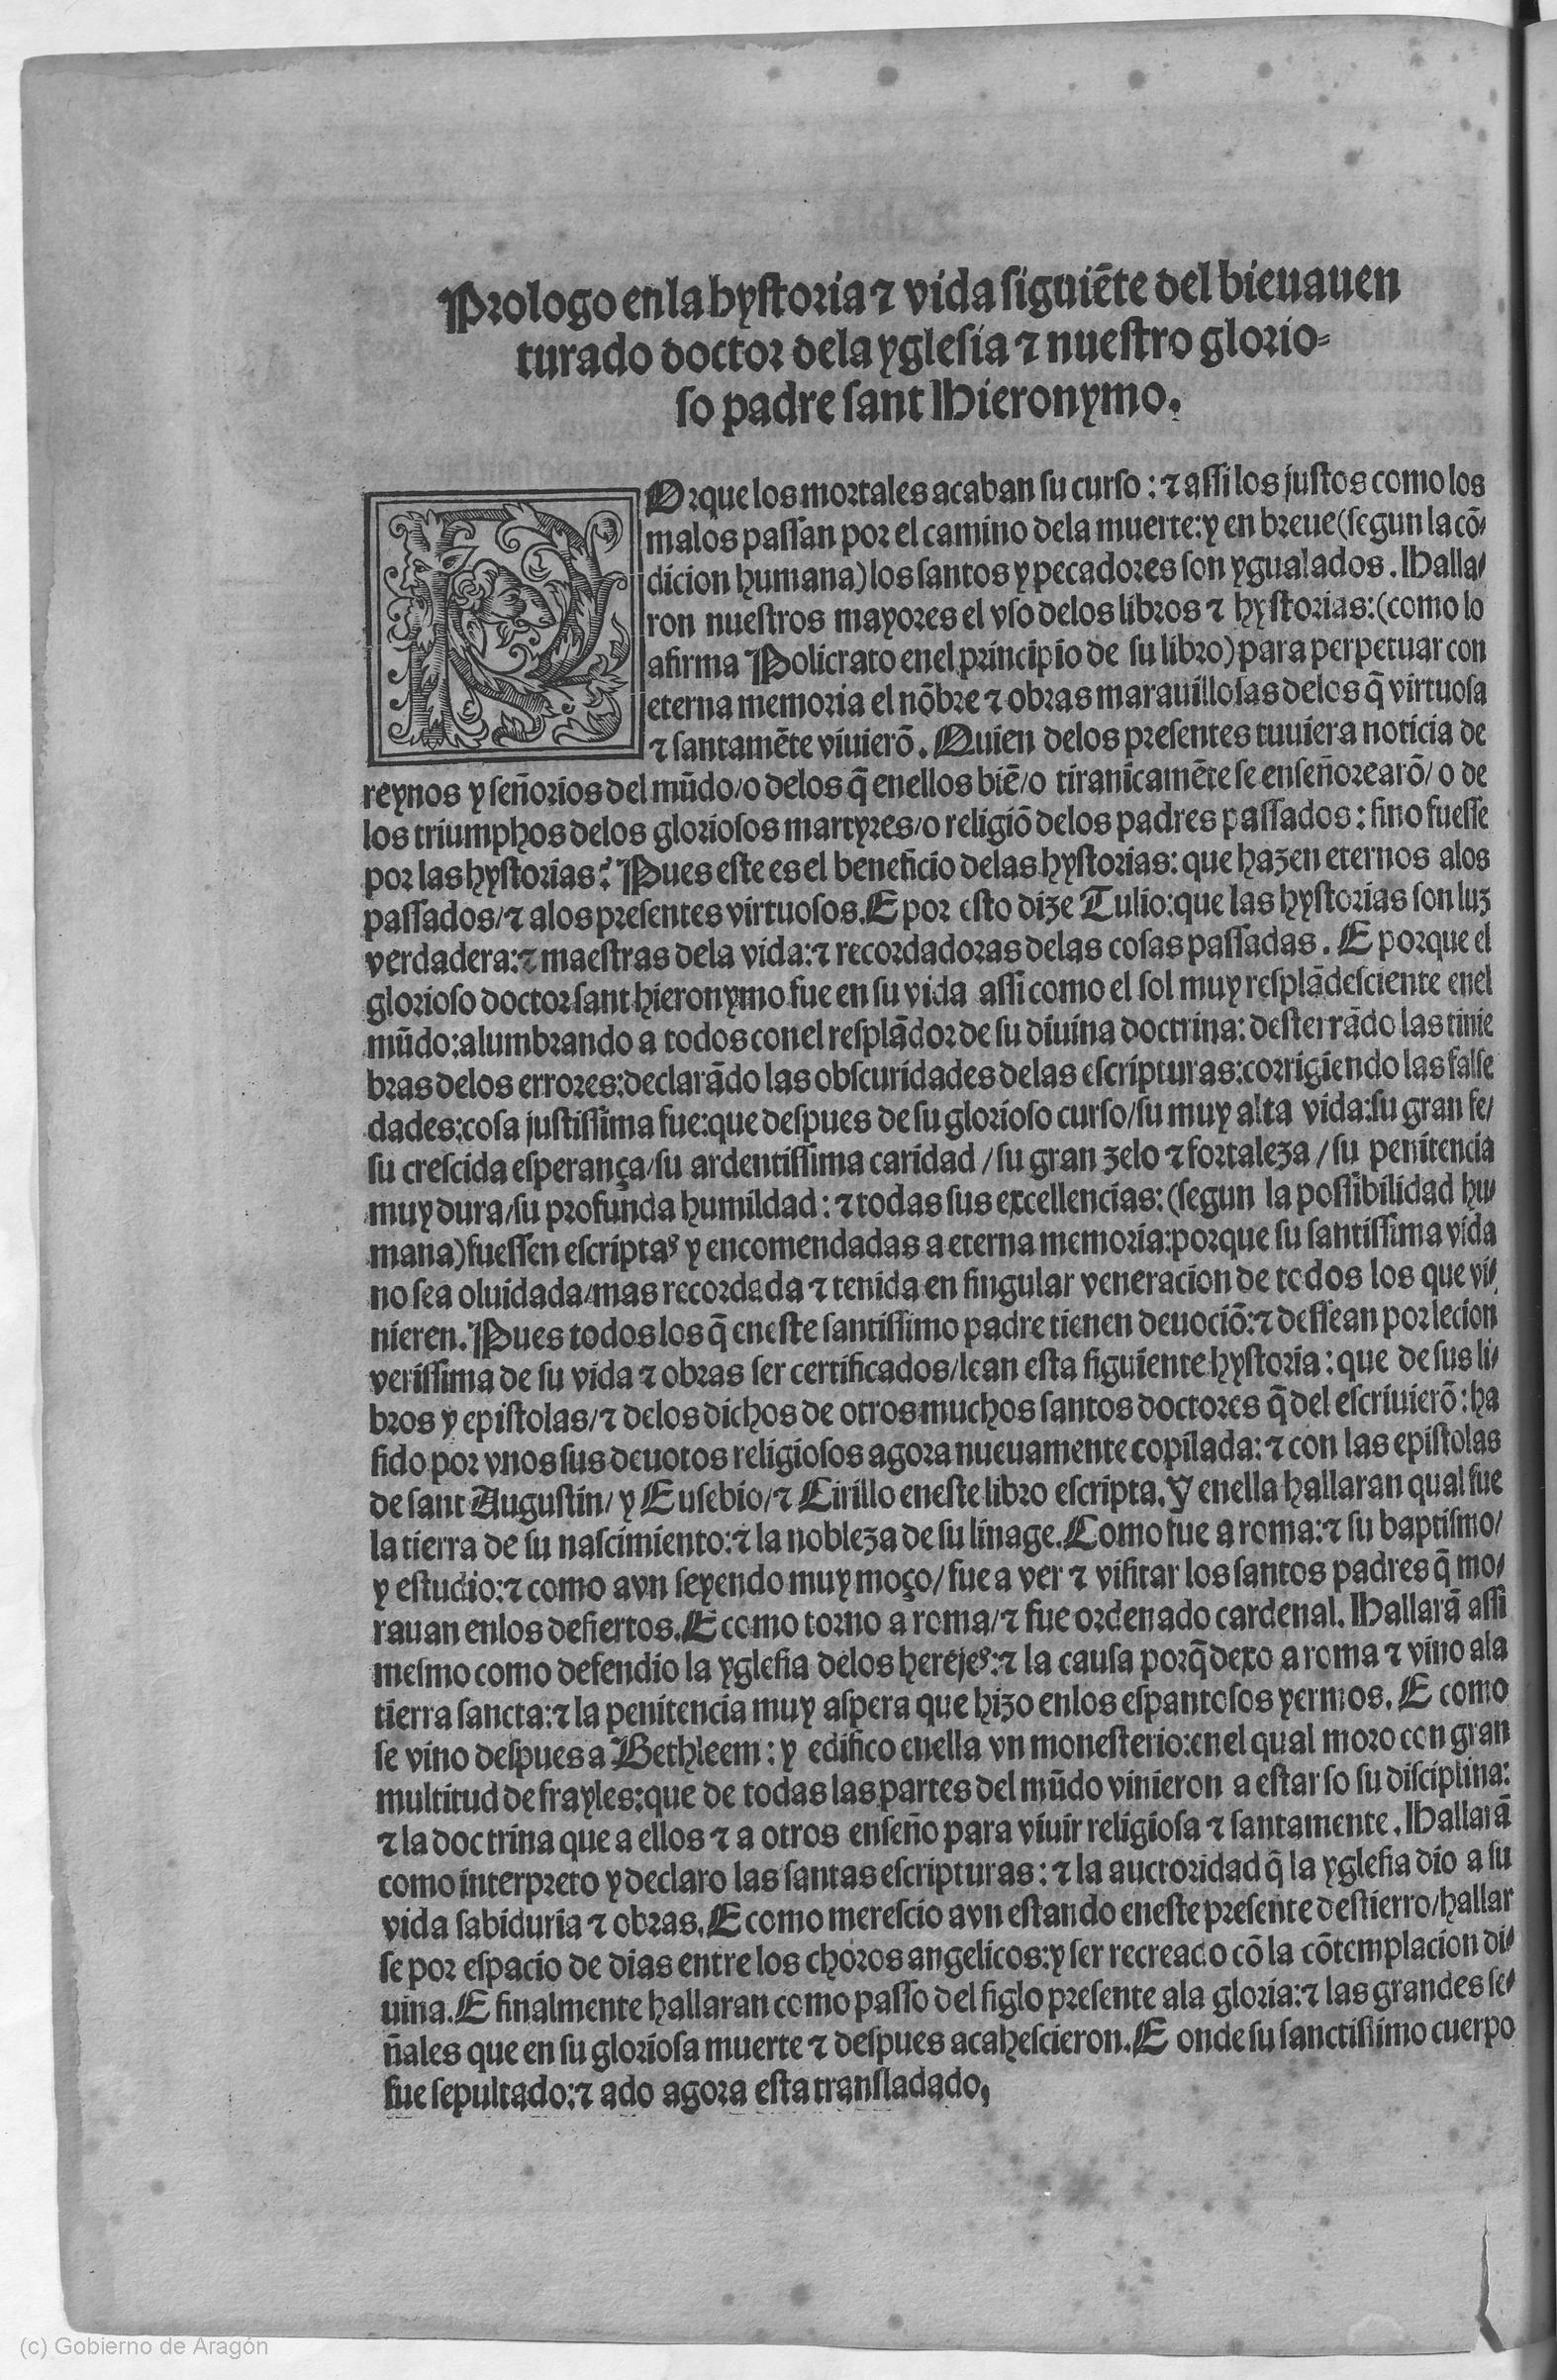 Prologo enla hystoria ⁊ vida siguiẽte del bieuauen
turado doctor dela yglesia ⁊ nuestro glorio-
so padre sant Hieronymo.
POrque los mortales acaban su curso : ⁊ assi los justos como los
malos passan por el camino dela muerte: y en breue (segun la cõ/
dicion humana) los santos y pecadores son ygualados. Halla/
ron nuestros mayores el vso delos libros ⁊ hystorias: (como lo
afirma Policrato enel principio de su libro) para perpetuar con
eterna memoria el nõbre ⁊ obras marauillosas delos q̃ virtuosa
⁊ santamẽte viuierõ. Quien delos presentes tuuiera noticia de
reynos y señorios del mũdo/o delos q̃ enellos biẽ/o tiranicamẽte se enseñorearõ/ o de
los triumphos delos gloriosos martyres/o religiõ delos padres passados: sino fuesse
por las hystorias? Pues este es el beneficio delas hystorias: que hazen eternos alos
passados/⁊ alos presentes virtuosos. E por esto dize Tulio: que las hystorias son luz
verdadera: ⁊ maestras dela vida: ⁊ recordadoras delas cosas passadas. E porque el
glorioso doctor sant hieronymo fue en su vida assi como el sol muy resplãdesciente enel
mũdo: alumbrando a todos conel resplãdor de su diuina doctrina: desterrãdo las tinie
bras delos errores: declarãdo las obscuridades delas escripturas: corrigiendo las false
dades: cosa justissima fue: que despues de su glorioso curso/su muy alta vida: su gran fe/
su crescida esperança/su ardentissima caridad /su gran zelo ⁊ fortaleza /su penitencia
muy dura/su profunda humildad: ⁊ todas sus excellencias: (segun la possibilidad hu/
mana) fuessen escriptaꝰ y encomendadas a eterna memoria: porque su santissima vida
no sea oluidada/mas recordada ⁊ tenida en singular veneracion de todos los que vi/
nieren. Pues todos los q̃ eneste santissimo padre tienen deuociõ: ⁊ dessean por lecion
verissima de su vida ⁊ obras ser certificados/lean esta siguiente hystoria: que de sus li/
bros y epistolas/⁊ delos dichos de otros muchos santos doctores q̃ del escriuierõ: ha
sido por vnos sus deuotos religiosos agora nueuamente copilada: ⁊ con las epistolas
de sant Augustin/ y Eusebio/⁊ Cirillo eneste libro escripta. Y enella hallaran qual fue
la tierra de su nascimiento: ⁊ la nobleza de su linage. Como fue a roma: ⁊ su baptismo/
y estudio: ⁊ como avn seyendo muy moço/ fue a ver ⁊ visitar los santos padres q̃ mo/
rauan enlos desiertos. E como torno a roma/⁊ fue ordenado cardenal. Hallarã assi
mesmo como defendio la yglesia delos herejeꝰ: ⁊ la causa porq̃ dexo a roma ⁊ vino ala
tierra sancta: ⁊ la penitencia muy aspera que hizo enlos espantosos yermos. E como
se vino despues a Bethleem: y edifico enella vn monesterio: enel qual moro con gran
multitud de frayles: que de todas las partes del mũdo vinieron a estar so su disciplina:
⁊ la doctrina que a ellos ⁊ a otros enseño para viuir religiosa ⁊ santamente. Hallarã
como interpreto y declaro las santas escripturas: ⁊ la auctoridad q̃ la yglesia dio a su
vida sabiduria ⁊ obras. E como merescio avn estando eneste presente destierro/hallar
se por espacio de dias entre los choros angelicos: y ser recreado cõ la cõtemplacion di/
uina. E finalmente hallaran como passo del siglo presente ala gloria: ⁊ las grandes se/
ñales que en su gloriosa muerte ⁊ despues acahescieron. E onde su sanctissimo cuerpo
fue sepultado: ⁊ ado agora esta transladado,
(c) Gobierno de Aragón